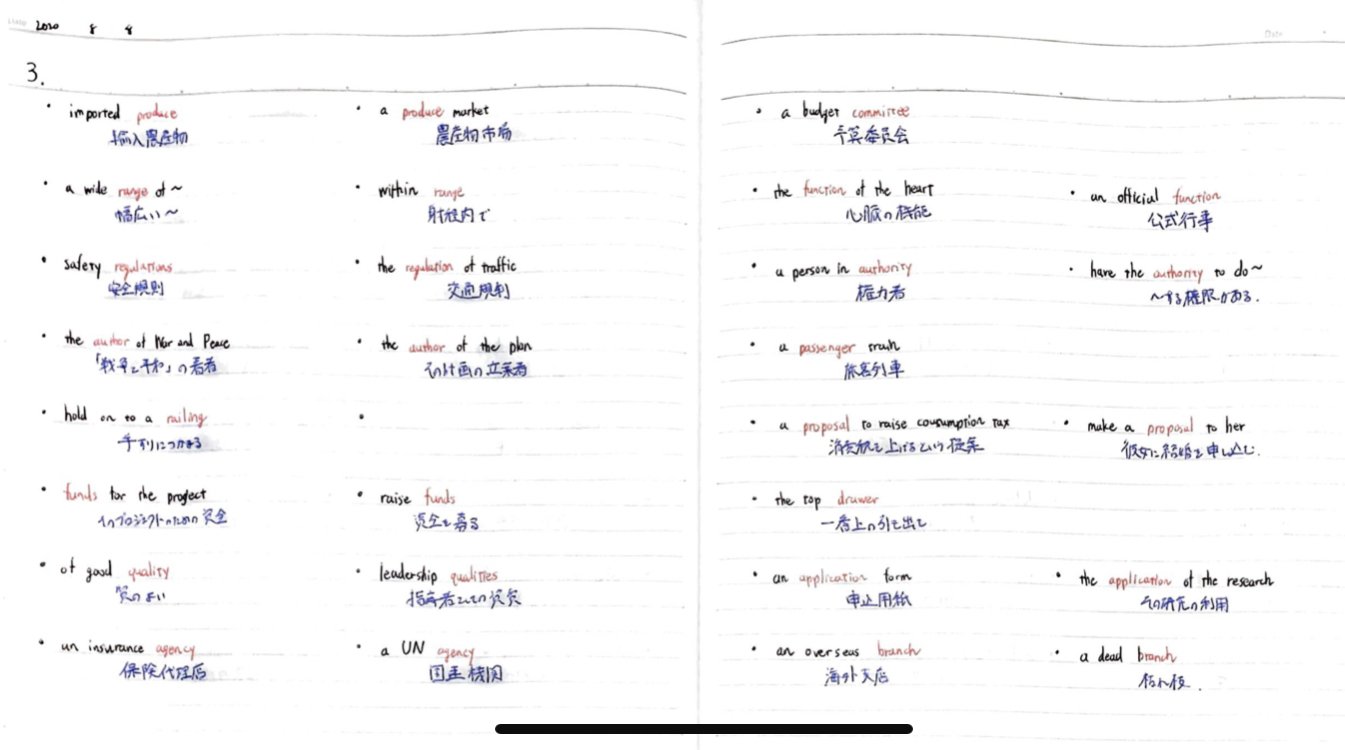 2020 8 8
3.
• imported produce
輸入農産物
• a produce market
農産物市場
• a wide range of ~
幅広い~
• within range
射程内で
• safety regulations
安全規則
• the regulation of traffic
交通規制
• the author of War and Peace
「戦争と平和」の著者
• the author of the plan
その計画の立案者
• hold on to a railing
手すりにつかまる
•
• funds for the project
そのプロジェクトのための資金
• raise funds
資金を募る
• of good quality
質のよい
• leadership qualities
指導者としての資質
• an insurance agency
保険代理店
• a UN agency
国連機関
Date
• a budget committee
予算委員会
• the function of the heart
心臓の機能
• an official function
公式行事
• a person in authority
権力者
• have the authority to do~
~する権限がある.
• a passenger train
旅客列車
• a proposal to raise consumption tax
消費税を上げるという提案
• make a proposal to her
彼女に結婚を申し込む.
• the top drawer
一番上の引き出し
• an application form
申込用紙
• the application of the research
その研究の利用
• an overseas branch
海外支店
• a dead branch
枯れ枝.